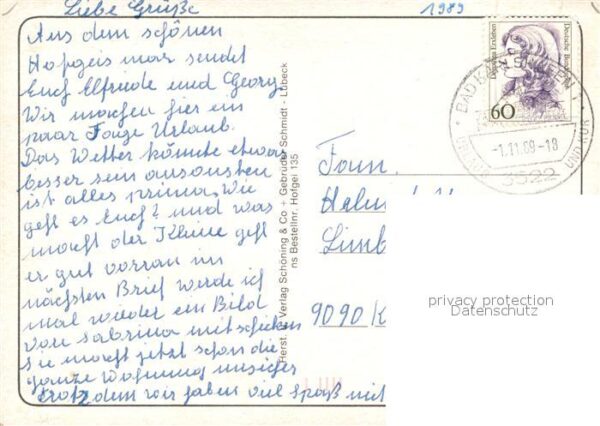 Liebe Grüße
1989
Aus dem schönen
Hofgeismar sendet
Euch Elfriede und Georg
Wir machen hier ein
paar Tage Urlaub.
Das Wetter könnte etwas
besser sein ansonsten
ist alles prima. Wie
geht es Euch? und was
macht der Kleine geht
er gut vorran im
nächsten Brief werde ich
mal wieder ein Bild
von Sabrina mitschicken
Sie macht jetzt schon die
ganze Wohnung unsicher
trotzdem wir haben viel Spaß mit
Herst. u. Verlag Schöning & Co + Gebrüder Schmidt - Lübeck
ns Bestellnr. Hofgei 135
Deutsche Bundespost
60
BAD KARLSHAFEN
URLAUB UND KUR
-1.11.89-18
3522
Fam.
Limb
9090 K
privacy protection
Datenschutz